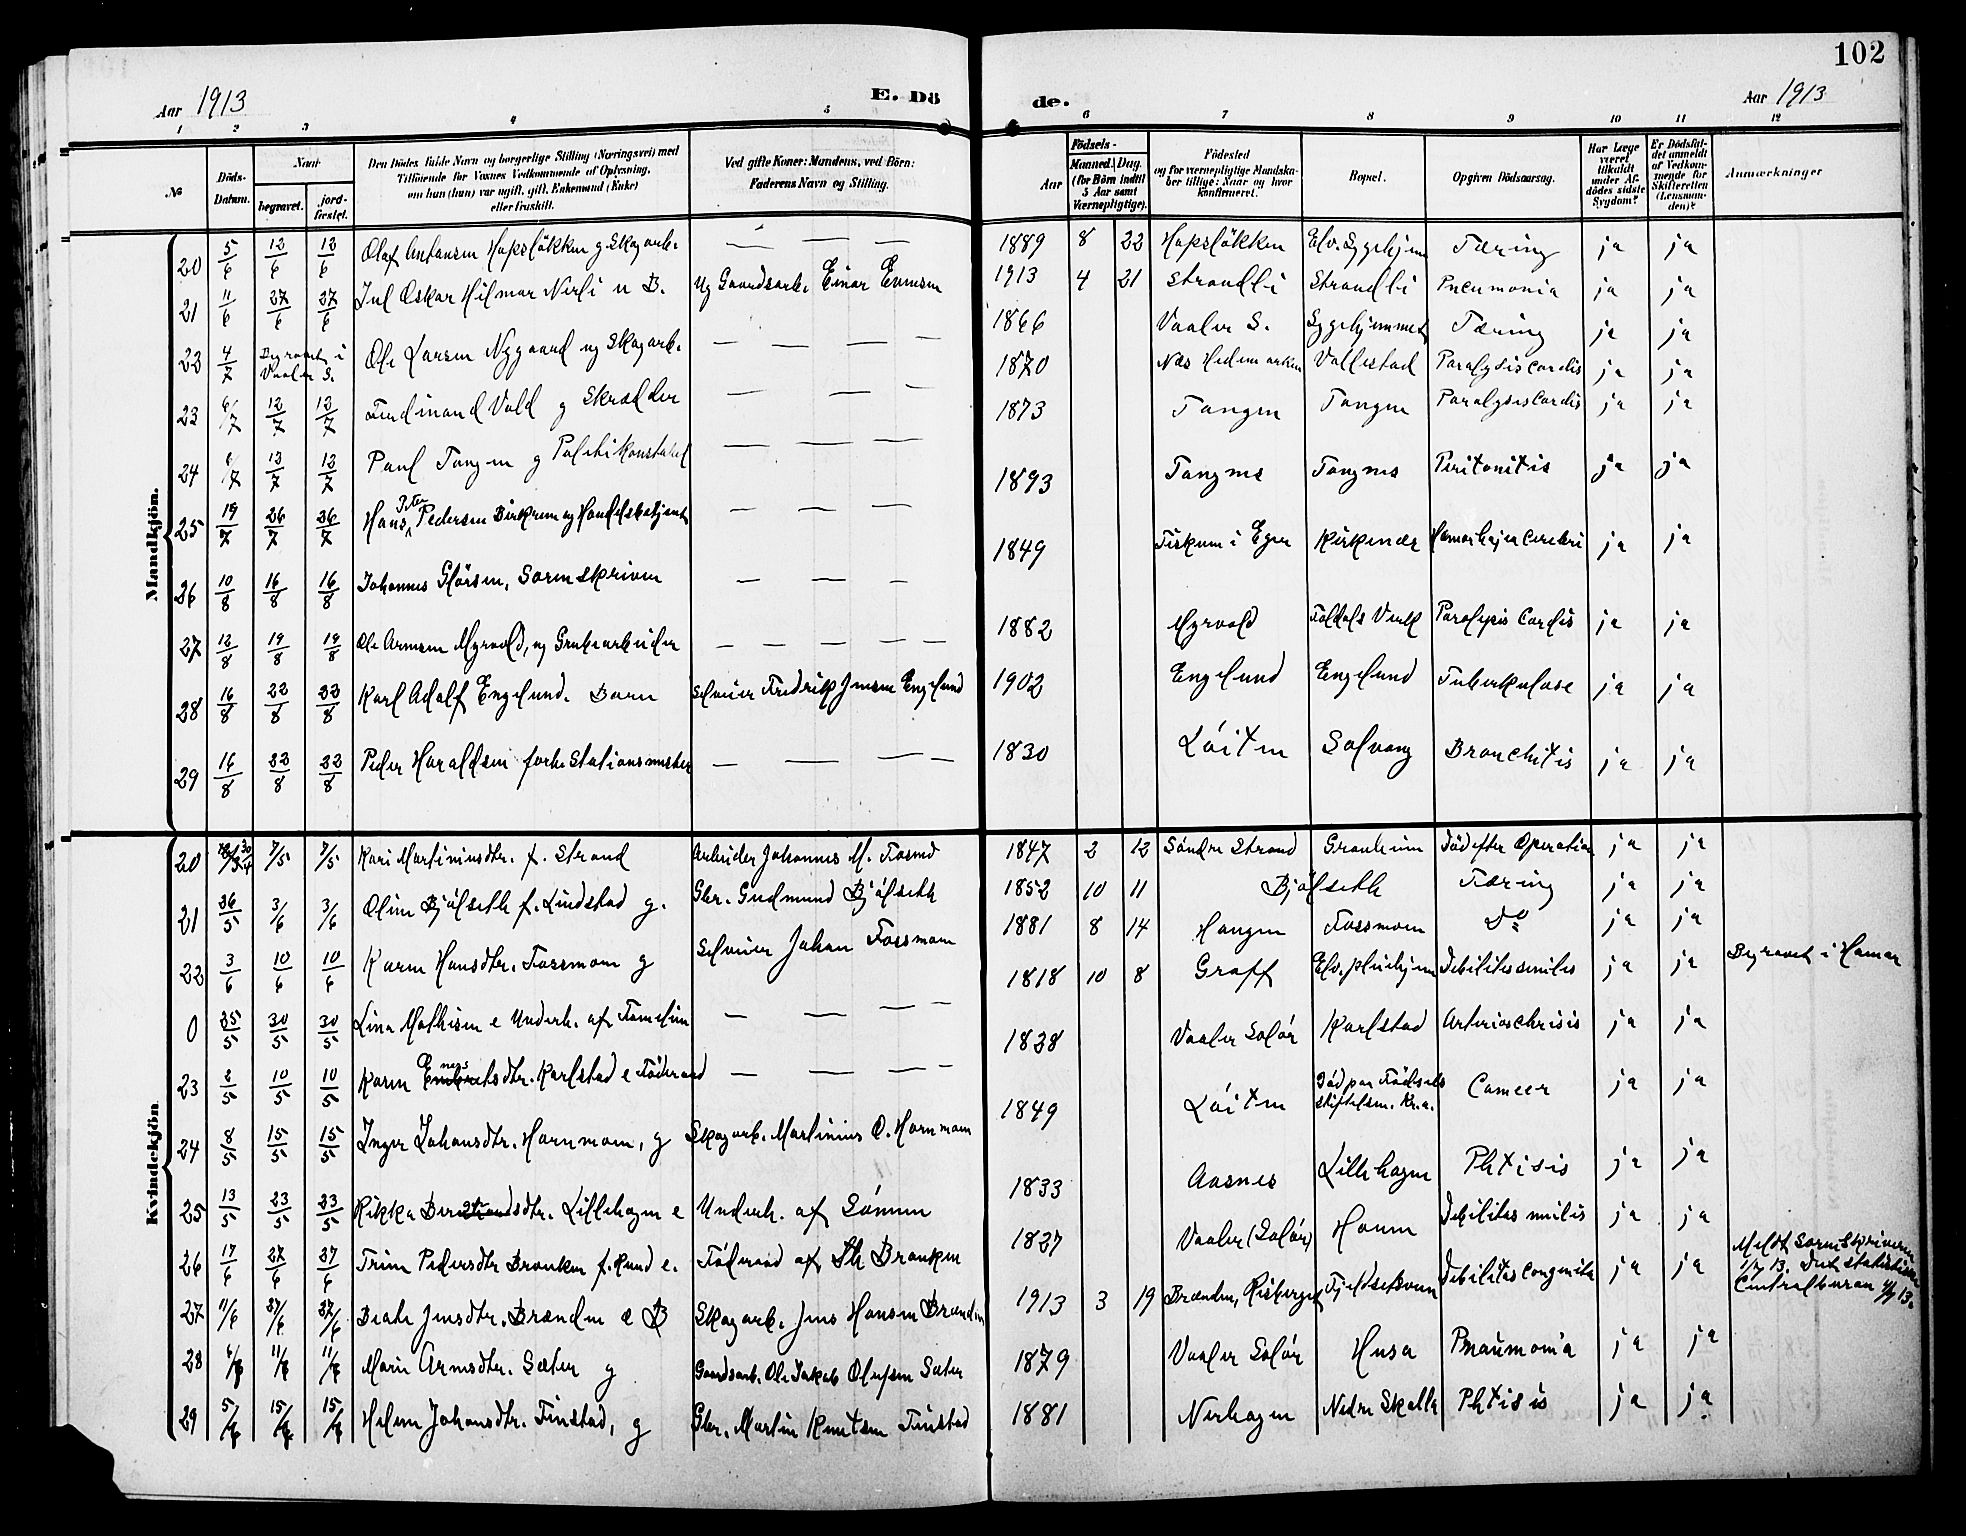 102
Aar 1913 E. Dö
de. Aar 1913
1 2 3 4 5
6 7 8 9 10 11 12
No
Döds-Datum.
Naar
begravet.
jord-fæstet.
Den Dödes fulde Navn og borgerlige Stilling (Næringsvei) med
Tilföiende for Voxnes Vedkommende af Oplysning,
om hun (han) var ugift, gift, Enkemand (Enke)
eller fraskilt.
Ved gifte Koner: Mandens, ved Börn:
Faderens Navn og Stilling.
Födsels-
Aar
Maaned. Dag.
(for Börn indtil
5 Aar samt
Værnepligtige).
Födested
og for værnepligtige Mandska-
ber tillige: Naar og hvor
konfirmeret.
Bopæl.
Opgiven Dödsaarsag.
Har Læge
været
tilkaldt
under Af-
dödes sidste
Sygdom?
Er Dödsfal-
det anmeldt
af Vedkom-
mende for
Skifteretten
(Lensman-
den)?
Anmærkninger
Mandkjön.
20 5/6 12/6 12/6 Olaf Antonsen Hapsløkken g Skogarb. — — — 1889 8 22 Hapsløkken Elv. Sygehjem Tæring ja ja
21 11/6 27/6 27/6 Jul Oskar Hilmar Nerli u B. Ug Gaardsarb. Einar Evensen 1913 4 21 Strandli Strandli Pneumonia ja ja
22 4/7 Begravet i Vaaler S. Ole Larsen Nygaard ug Skogarb. — — — — 1866 Vaaler S. Sygehjemmet Tæring ja ja
23 6/7 12/7 12/7 Ferdinand Vold g Skrædder — — — 1870 Nes Hedemarken Vollestad Paralysis cordis ja ja
24 6/7 12/7 12/7 Paul Tangen g Politikonstabel — — — 1873 Tangen Tangen Paralysis Cordis ja ja
25 19/7 26/7 26/7 Hans Peter Pedersen Birkrem ug Handelsbetjent — — — 1893 Tangnes Tangnes Peritonitis ja ja
26 10/8 16/8 16/8 Johannes Glørsen, Sorenskriver — — — 1849 Fiskum i Eger Kirkenær Hæmorhagia Cerebri ja ja
27 12/8 19/8 19/8 Ole Arnesen Myrvold, ug Grubearbeider — — — — — 1882 Myrvold Foldals Verk Paralysis Cordis ja ja
28 16/8 22/8 22/8 Karl Adolf Englund. Barn Selveier Fredrik Jensen Englund 1902 Englund Englund Tuberkulose ja ja
29 16/8 22/8 22/8 Peder Haraldsen forh. Stationsmester — — — — 1830 Løiten Solvang Bronchitis ja ja
Kvindekjön
20 30/4 7/5 7/5 Kari Martiniusdtr. f. Strand Arbeider Johannes M. 1847 2 12 Søndre Strand Granheim Død efter Operation ja ja
21 26/5 3/6 3/6 Oline Bjølseth f. Lindstad g. Gbr. Gudmund Bjølseth 1852 10 11 Bjølseth Tæring ja ja
22 3/6 10/6 10/6 Karen Hansdtr. Fossmoen g Selveier Johan Fossmoen 1881 8 14 Haugen Fossmoen Do ja ja
0 25/5 30/5 30/5 Lina Mathisen e Underh. af Familien — — — — 1818 10 8 Graff Elv. pleiehjem Debilitas senilis ja ja Begravet i Hamar
23 2/5 10/5 10/5 Karen Engebretsdtr. Karlstad e Føderaad — — — — 1828 Vaaler Solør Karlstad ja ja
24 8/5 15/5 15/5 Inger Johansdtr. Hornmoen, g Skogarb. Martinius O. Hornmoen 1849 Løiten Død paa Fødsels stiftelsen. Kr.a. Cancer ja ja
25 13/5 23/5 23/5 Rikka Lillehagen e Underh. af Sønnen 1833 Aasnes Lillehagen Phtisis ja ja
26 17/6 27/6 27/6 Trine Pedersdtr Brauken f. Rund e. Føderaad af Brauken 1827 Vaaler (Solør) Hoven Debilitas senilis ja ja
27 11/6 27/6 27/6 Beate Jensdtr. Brænden æ B Skogarb. Jens Hansen Brænden 1913 3 19 Brænden, Risberget Debilitas congenita ja ja Meldt Sorenskriveren 1/7 13. Det statistiske Centralbureau 4/7 13.
28 6/8 11/8 11/8 Marie Arnesdtr. Sæter g Gaardsarb. Ole Jakob Olufsen Sæter 1879 Vaaler Solør Husa Pneumonia ja ja
29 5/8 15/8 15/8 Helene Johansdtr. Finstad, g Gbr. Martin Knutsen Finstad 1881 Nerhagen Nedre Skalla Phtisis ja ja